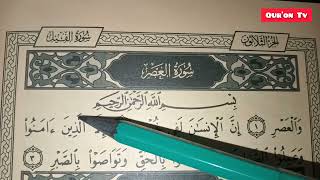 Qur'on Tv
الجُزءُ الثَّلَاثُونَ
سُورَةُ الفِيلِ
سُورَةُ العَصْرِ
بِسْمِ اللَّهِ الرَّحْمَٰنِ الرَّحِيمِ
وَٱلْعَصْرِ ١ إِنَّ ٱلْإِنسَٰنَ ٱلَّذِينَ ءَامَنُوا۟
وَعَمِلُوا۟ بِٱلْحَقِّ وَتَوَاصَوْا۟ بِٱلصَّبْرِ ٣